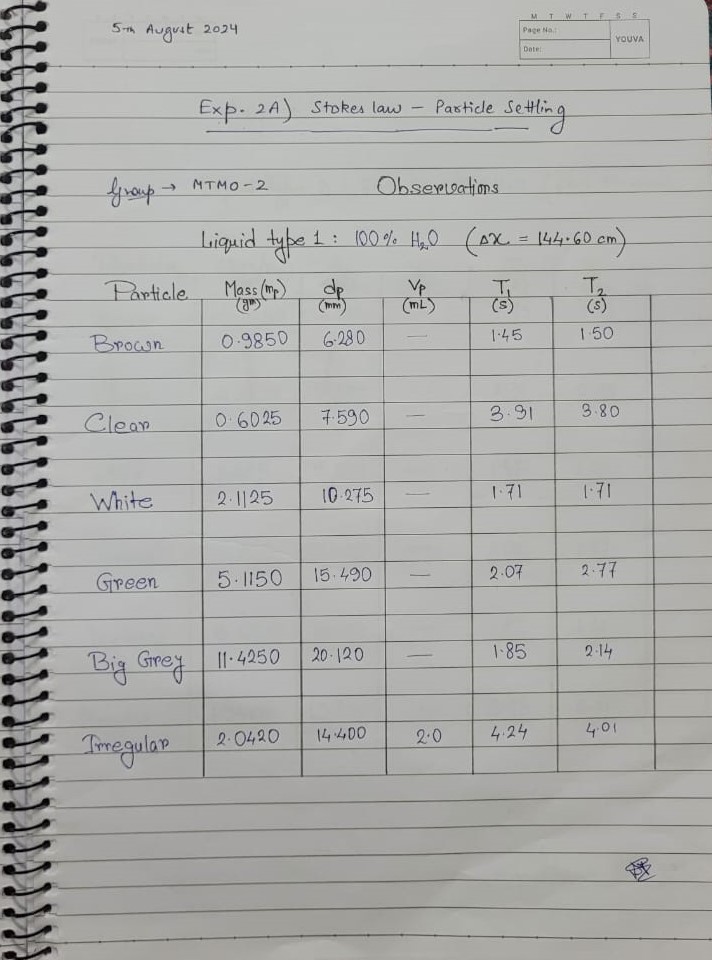 5th August 2024
M T W T F S S
Page No.:
YOUVA
Date:
Exp. 2A) Stokes law - Particle Settling
Group → MTMO-2 Observations
Liquid type 1 : 100% H₂O (Δx = 144.60 cm)
Particle Mass (mp) dp Vp T₁ T₂
(gm) (mm) (mL) (s) (s)
Brown 0.9850 6.280 — 1.45 1.50
Clear 0.6025 7.590 — 3.91 3.80
White 2.1125 10.275 — 1.71 1.71
Green 5.1150 15.490 — 2.07 2.77
Big Grey 11.4250 20.120 — 1.85 2.14
Irregular 2.0420 14.400 2.0 4.24 4.01